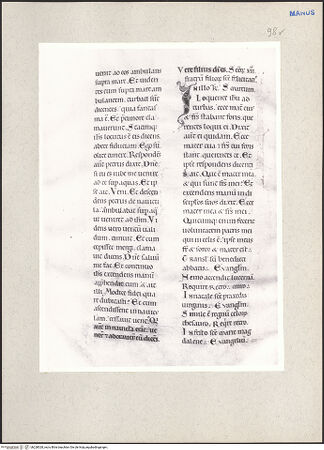 MANUS
98v
uenit ad eos ambulans
supra mare. Et uiden
tes eum supra mare am
bulantem. turbati sunt
dicentes. quia fantas
ma est. Et pre timore cla
mauerunt. Statimq;
ihs locutus est eis dicens.
habete fiduciam. Ego sum
nolite timere. Respondens
autem petrus dixit. Dne
si tu es iube me uenire
ad te sup aquas. Et ip
se ait. Veni. Et descen
dens petrus de nauicu
la. ambulabat sup aq
ut ueniret ad ihm. Vi
dens uero uentum uali
dum. timuit. Et cum
cepisset mergi. clama
uit dicens. Dne saluu
me fac. Et continuo
ihs extendens manum
apphendit eum. & ait
illi. Modice fidei qua
re dubitasti. Et cum
ascendissent in nauicu
lam. cessauit uent.
aut in nauicula erat. ue
ner & adorauer eum dicetes
Vere filius di es.
In illo t.
Loquente ihu ad
turbas. ecce mater eius
& frs stabant foris. que
rentes loqui ei. Dixit
autem ei quidam. Ecce
mater tua & frs tui foris
stant querentes te. Et
ipse respondens dicenti
s. ait. Que est mater mea
& qui sunt frs mei. Et
extendens manum in di
scipulos suos dixit. Ecce
mater mea & frs mei.
Quicumq; enim fecerit
uoluntatem patris mei
qui in celis est. ipse meus
fr & soror & mater est.
benedicti
abbatis. Euanglm.
Nemo accendit lucernam.
Require
In natale sce praxedis
uirginis. Euanglm.
Simile est regnu celorum
thesauro. Reqre
In festo sce marie mag
dalene. Euanglm.